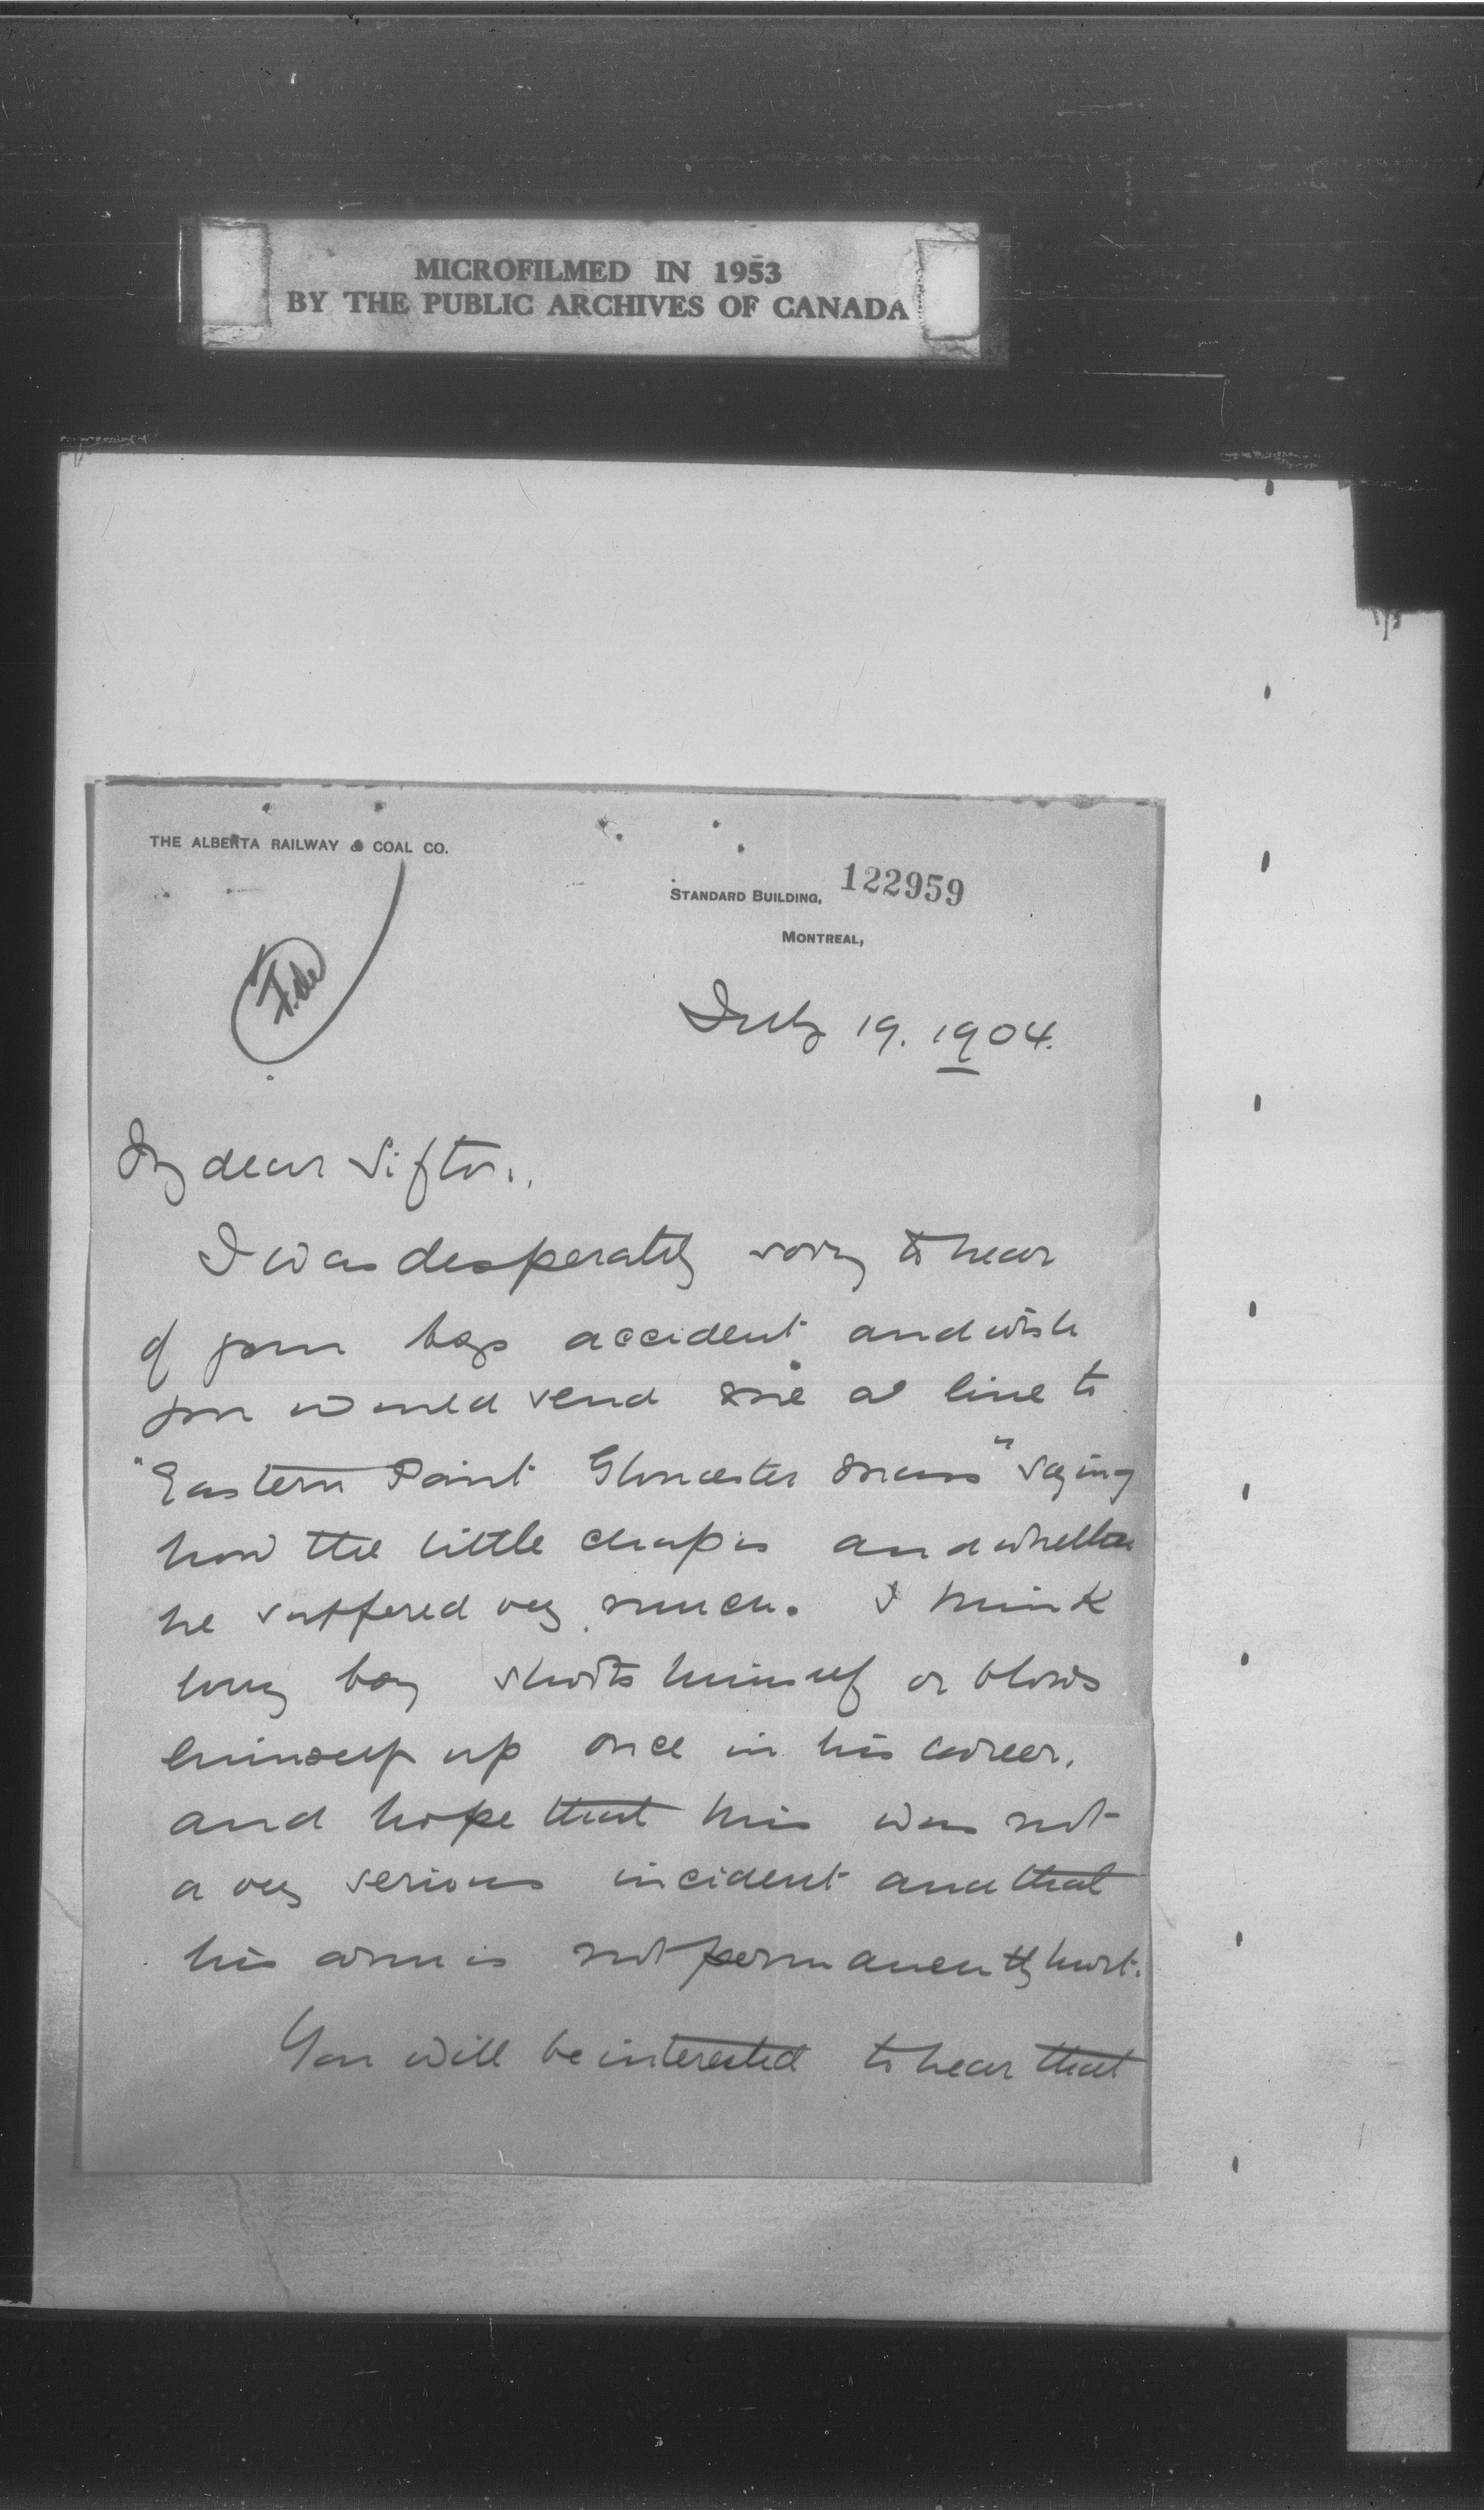 MICROFILMED IN 1953
BY THE PUBLIC ARCHIVES OF CANADA
THE ALBERTA RAILWAY & COAL CO.
122959
STANDARD BUILDING,
MONTREAL,
File
July 19. 1904.
My dear Sifton,
I was desperately sorry to hear
of your boys accident and wish
you would send me a line to
"Eastern Point Gloucester Mass" saying
how the little chap is and whether
he suffered very much. I think
every boy shoots himself or blows
himself up once in his career,
and hope that this was not
a very serious incident and that
his arm is not permanently hurt.
You will be interested to hear that